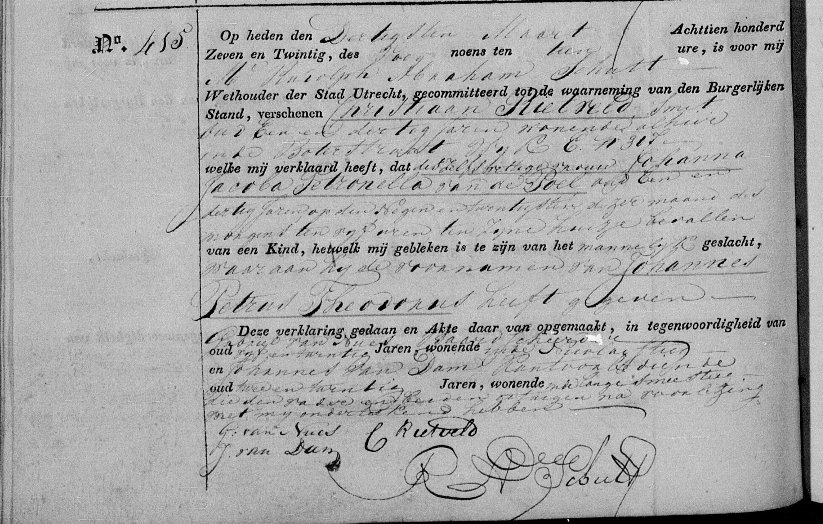 No. 415
Op heden den Dertigsten Maart Achttien honderd
Zeven en Twintig, des Voor noens ten tien ure, is voor mij
Mr Roeloph Abraham Schutt
Wethouder der Stad Utrecht, gecommitteerd tot de waarneming van den Burgerlijken
Stand, verschenen Christiaan Rietveld Smet
oud Een en dertig jaren wonende alhier
in de Boterstraat Wyk E. N
welke mij verklaard heeft, dat deszelfs huisvrouw Johanna
Jacoba Petronella van de Poel oud Een en
dertig jaren op den Negen en twintigsten dezer maand des
morgens ten vyf uren ten zijne huize bevallen
van een Kind, hetwelk mij gebleken is te zijn van het mannelyk geslacht,
waaraan hy de voornamen van Johannes
Petrus Theodorus heeft gegeven
Deze verklaring gedaan en Akte daar van opgemaakt, in tegenwoordigheid van
Gabriel van
oud vyf en twintig Jaren, wonende in de
en Johannes van Dam Kantoorbediende
oud twee en twintig Jaren, wonende in de lange Smeestee
die den vader en beiden getuigen na voorlezing
met my ondertekend hebben
G. van Nues
J. van Dam
C Rietveld
R A Schutt